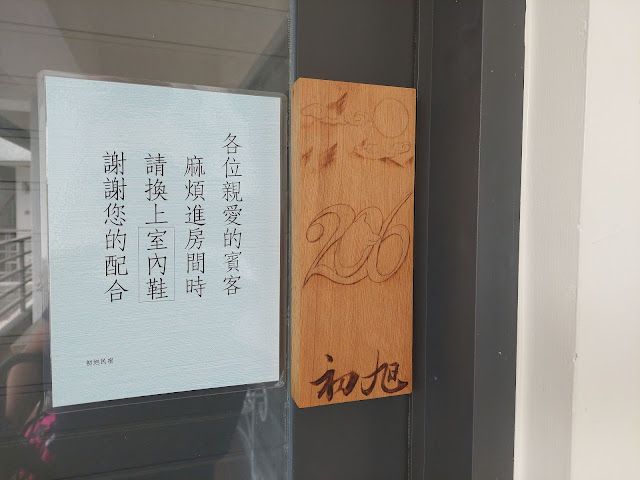 各位親愛的賓客
麻煩進房間時
請換上室內鞋
謝謝您的配合
206
初旭